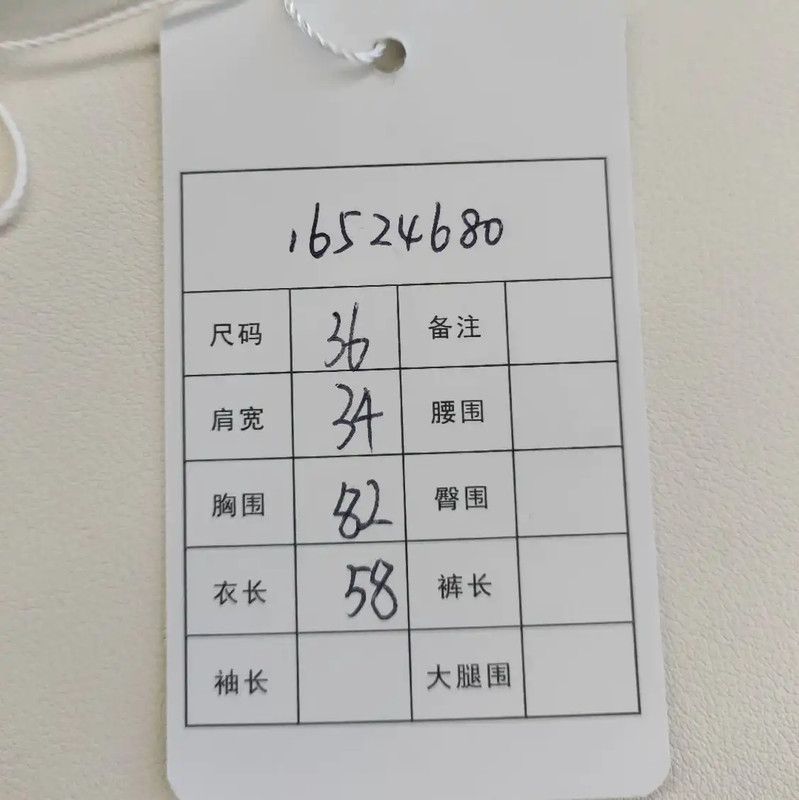 16524680
尺码 36 备注
肩宽 34 腰围
胸围 82 臀围
衣长 58 裤长
袖长 大腿围